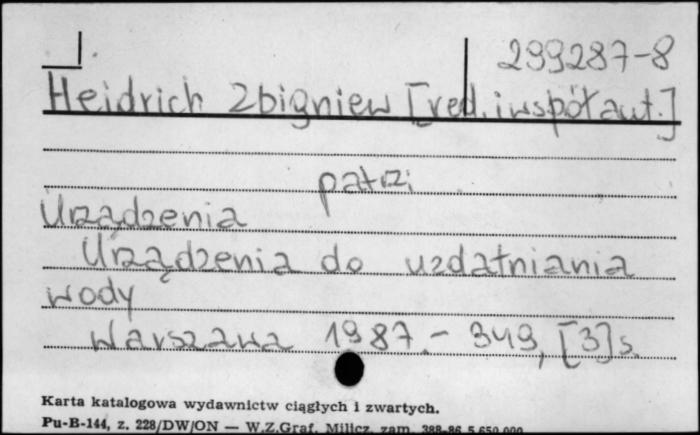 299287-8
Heidrich Zbigniew [red. i współaut.]
patrz:
Urządzenia
Urządzenia do uzdatniania
wody
Warszawa 1987.- 349, [3] s.
Karta katalogowa wydawnictw ciągłych i zwartych.
Pu-B-144, z. 228/DW/ON — W.Z.Graf. Milicz, zam. 388-86 5.650.000